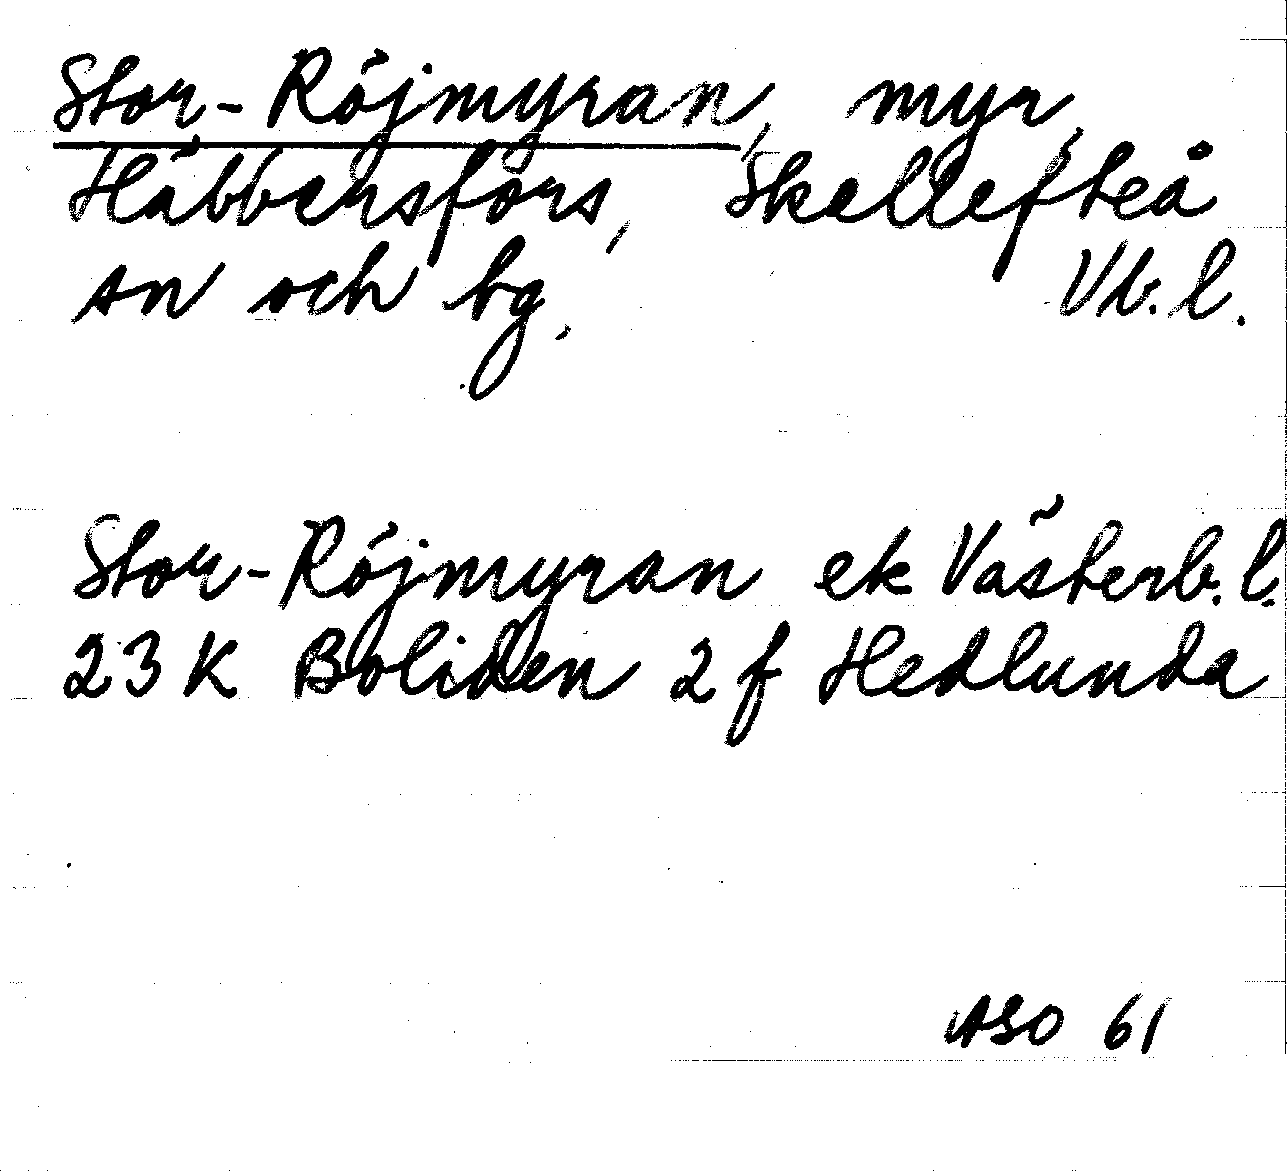 Stor-Röjmyran, myr,
Häbbersfors, Skellefteå
sn och bg. Vb. l.
Stor-Röjmyran ek Västerb. l.
23 K Boliden 2 f Hedlunda
ASO 61